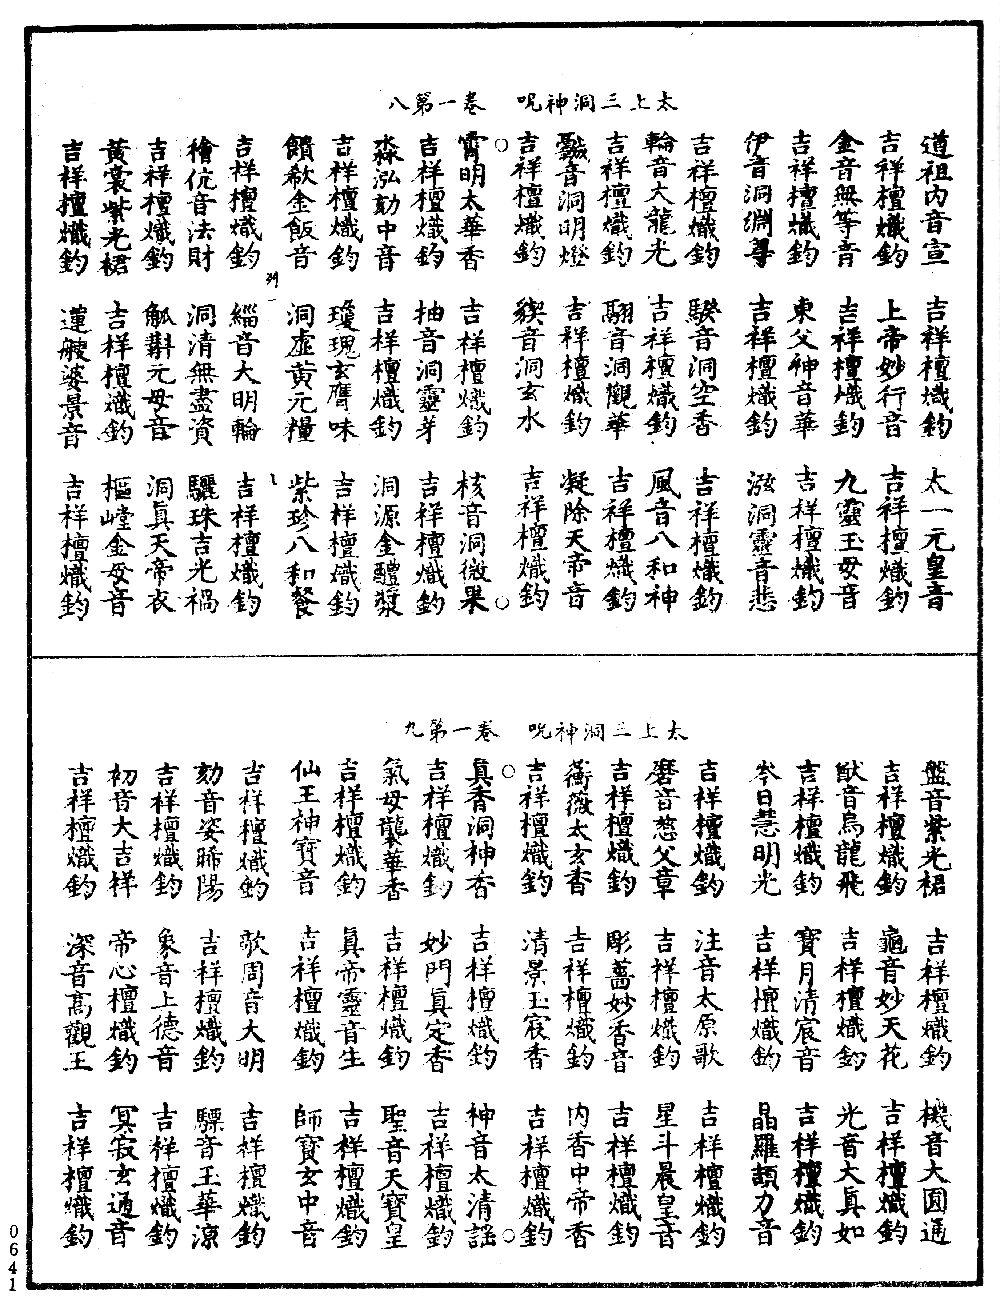 太上三洞神呪　卷一第八
道祖内音宣　吉祥檀熾鈞　太一元皇音
吉祥檀熾鈞　上帝妙行音　吉祥檀熾鈞
金音無等音　吉祥檀熾鈞　九靈玉母音
吉祥檀熾鈞　東父神音華　吉祥檀熾鈞
伊音洞淵尊　吉祥檀熾鈞　洞靈音悲
吉祥檀熾鈞　音洞空香　吉祥檀熾鈞
輪音大龍光　吉祥檀熾鈞　風音八和神
吉祥檀熾鈞　音洞觀華　吉祥檀熾鈞
音洞明燈　吉祥檀熾鈞　凝除天帝音
吉祥檀熾鈞　音洞玄水　吉祥檀熾鈞
霄明太華香　吉祥檀熾鈞　核音洞微果
吉祥檀熾鈞　抽音洞靈芽　吉祥檀熾鈞
淼泓劾中音　吉祥檀熾鈞　洞源金醴漿
吉祥檀熾鈞　瓊瑰玄膺味　吉祥檀熾鈞
饙欷金飯音　洞虛黄元糧　紫珍八和餐
列一
吉祥檀熾鈞　緇音大明輪　吉祥檀熾鈞
伉音法財　洞清無盡資　驪珠吉光禍
吉祥檀熾鈞　觚斠元母音　洞眞天帝衣
黄裳紫光裙　吉祥檀熾鈞　樞嵿金母音
吉祥檀熾鈞　蓮艘婆景音　吉祥檀熾鈞
太上三洞神呪　卷一第九
盤音紫光裙　吉祥檀熾鈞　機音大圓通
吉祥檀熾鈞　龜音妙天花　吉祥檀熾鈞
猷音烏龍飛　吉祥檀熾鈞　光音大眞如
吉祥檀熾鈞　寶月清宸音　吉祥檀熾鈞
岑日慧明光　吉祥檀熾鈞　晶羅頡力音
吉祥檀熾鈞　注音太原歌　吉祥檀熾鈞
磨音憗父章　吉祥檀熾鈞　星斗晨皇音
吉祥檀熾鈞　彫薔妙香音　吉祥檀熾鈞
蘅薇太玄香　吉祥檀熾鈞　内香中帝香
吉祥檀熾鈞　清景玉宸香　吉祥檀熾鈞
眞香洞神香　吉祥檀熾鈞　神音太清謡
吉祥檀熾鈞　妙門眞定香　吉祥檀熾鈞
氣母龍華香　吉祥檀熾鈞　聖音天寶皇
吉祥檀熾鈞　眞帝靈音生　吉祥檀熾鈞
仙王神寶音　吉祥檀熾鈞　師寶玄中音
吉祥檀熾鈞　歌周音大明　吉祥檀熾鈞
劾音姿晞陽　吉祥檀熾鈞　驃音王華涼
吉祥檀熾鈞　象音上德音　吉祥檀熾鈞
初音大吉祥　帝心檀熾鈞　冥寂玄通音
吉祥檀熾鈞　深音高觀王　吉祥檀熾鈞
0641